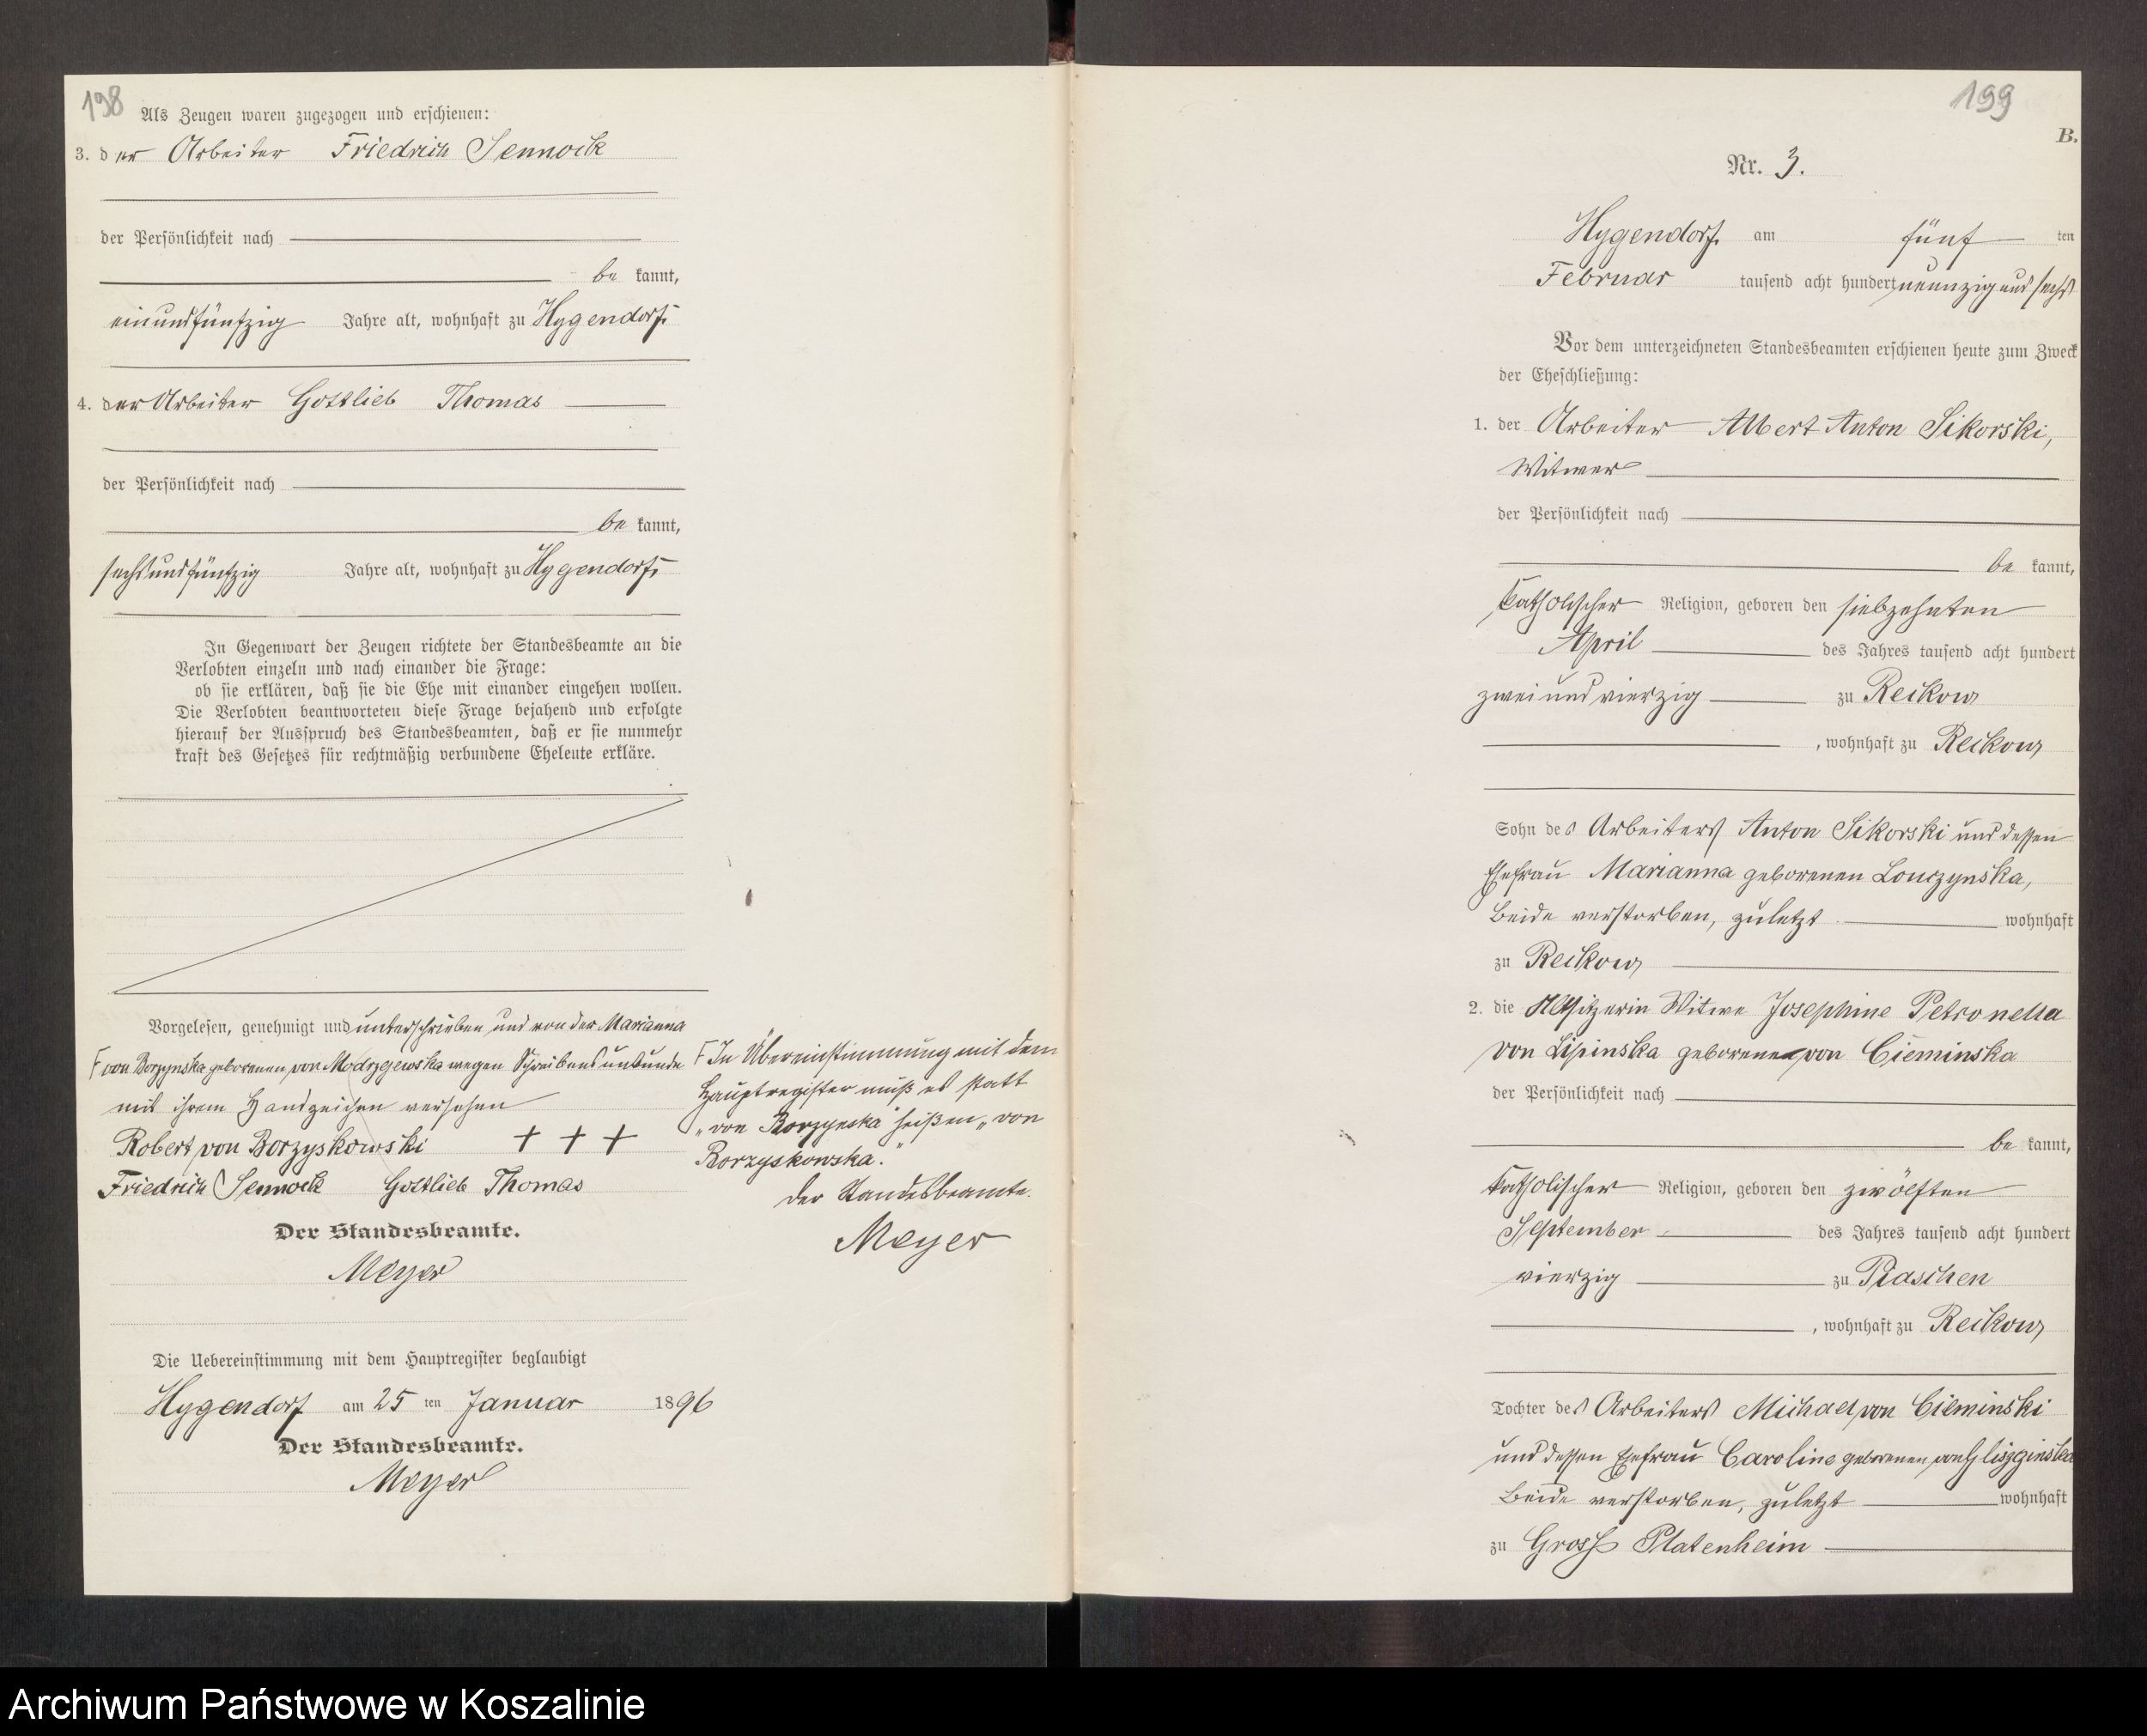 198
Als Zeugen waren zugezogen und erschienen:
3. der Arbeiter Friedrich Sennock
der Persönlichkeit nach
be kannt,
einundfünfzig Jahre alt, wohnhaft zu Hygendorf.
4. der Arbeiter Gottlieb Thomas
der Persönlichkeit nach
be kannt,
sechsundfünfzig Jahre alt, wohnhaft zu Hygendorf.
In Gegenwart der Zeugen richtete der Standesbeamte an die
Verlobten einzeln und nach einander die Frage:
ob sie erklären, daß sie die Ehe mit einander eingehen wollen.
Die Verlobten beantworteten diese Frage bejahend und erfolgte
hierauf der Ausspruch des Standesbeamten, daß er sie nunmehr
kraft des Gesetzes für rechtmäßig verbundene Eheleute erkläre.
Vorgelesen, genehmigt und unterschrieben und von der Marianna
von Borzynska geborenen von Modrzejewska wegen Schreibensunkunde
mit ihrem Handzeichen versehen
Robert von Borzyskowski + + +
Friedrich Sennock Gottlieb Thomas
Der Standesbeamte.
Meyer
Die Uebereinstimmung mit dem Hauptregister beglaubigt
Hygendorf am 25 ten Januar 1896
Der Standesbeamte.
Meyer
In Übereinstimmung mit dem
Hauptregister muß es statt
„von Borzynska" heißen „von
Borzyskowska."
Der Standesbeamte.
Meyer
199
B.
Nr. 3.
Hygendorf, am fünf ten
Februar tausend acht hundert neunzig und sechs
Vor dem unterzeichneten Standesbeamten erschienen heute zum Zweck
der Eheschließung:
1. der Arbeiter Albert Anton Sikorski,
Witwer
der Persönlichkeit nach
be kannt,
katholischer Religion, geboren den siebzehnten
April des Jahres tausend acht hundert
zwei und vierzig zu Reckow
, wohnhaft zu Reckow
Sohn des Arbeiters Anton Sikorski und dessen
Ehefrau Marianna geborenen Lonczynska,
beide verstorben, zuletzt wohnhaft
zu Reckow
2. die Altsitzerin Witwe Josephine Petronella
von Lipinska geborene von Cieminska
der Persönlichkeit nach
be kannt,
katholischer Religion, geboren den zwölften
September des Jahres tausend acht hundert
vierzig zu Piaschen
, wohnhaft zu Reckow
Tochter des Arbeiters Michael von Cieminski
und dessen Ehefrau Caroline geborenen von Gliszginska
beide verstorben, zuletzt wohnhaft
zu Gross Platenheim
Archiwum Państwowe w Koszalinie